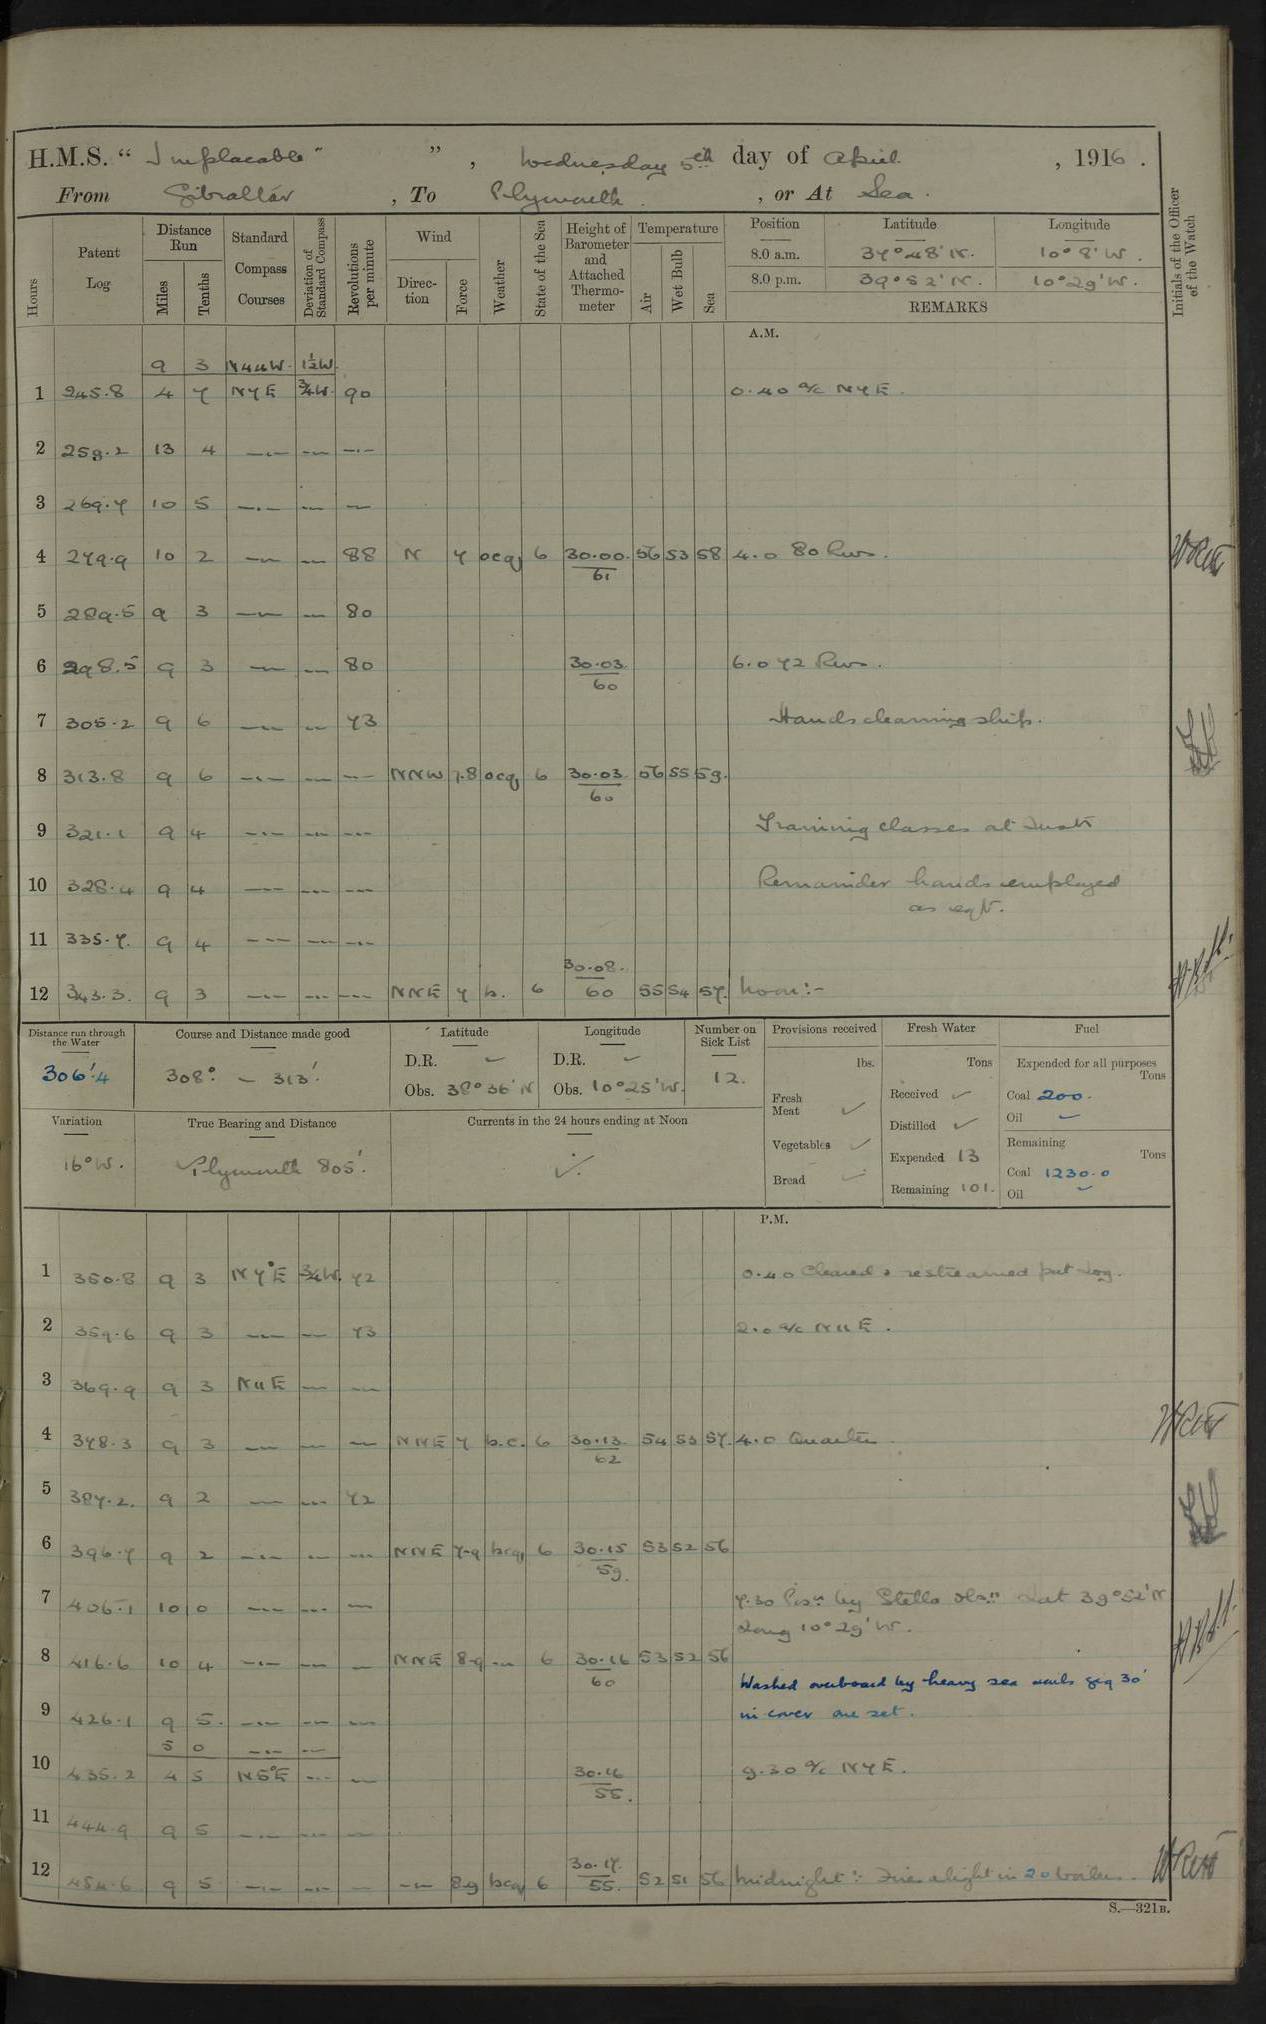 H.M.S. " Implacable " " , Wednesday 5th day of April , 1916 .
From Gibraltar , To Plymouth . , or At Sea .
Hours
Patent Log
Distance Run
Miles
Tenths
Standard Compass Courses
Deviation of Standard Compass
Revolutions per minute
Wind
Direction
Force
Weather
State of the Sea
Height of Barometer and Attached Thermometer
Temperature
Air
Wet Bulb
Sea
Position Latitude Longitude
8.0 a.m. 37° 48' N. 10° 8' W.
8.0 p.m. 39° 52' N. 10° 29' W.
REMARKS
Initials of the Officer of the Watch
A.M.
9 3 N44W. 1½W.
1 245.8 4 7 N7E ¾W. 90 0.40 a/c N7E.
2 259.2 13 4 —.— —.— —.—
3 269.7 10 5 —.— — —
4 279.9 10 2 — — 88 N 7 ocq 6 30.00 61 56 53 58 4.0 80 Revs.
5 289.5 9 3 — — 80
6 298.5 9 3 — — 80 30.03 60 6.0 72 Revs.
7 305.2 9 6 — — 73 Hands cleaning ship.
8 313.8 9 6 —.— — — NNW 7.8 ocq 6 30.03 60 56 55 59.
9 321.1 9 4 —.— — — Training classes at Instr
10 328.4 9 4 — — — Remainder hands employed
as reqd.
11 335.7. 9 4 — — —
12 343.3. 9 3 — — — NNE 7 b. 6 30.08. 60 55 54 57. Noon:-
Distance run through the Water
306'.4
Course and Distance made good
308°. – 313'.
Latitude
D.R. ✓
Obs. 38° 36' N
Longitude
D.R. ✓
Obs. 10° 25' W.
Number on Sick List
12.
Provisions received
lbs.
Fresh Meat ✓
Vegetables ✓
Bread ✓
Fresh Water
Tons
Received ✓
Distilled ✓
Expended 13
Remaining 101.
Fuel
Expended for all purposes
Tons
Coal 200.
Oil ✓
Remaining
Tons
Coal 1230.0
Oil ✓
Variation
16° W.
True Bearing and Distance
Plymouth 805'.
Currents in the 24 hours ending at Noon
✓.
P.M.
1 350.8 9 3 N7°E ¾W. 72 0.40 Cleared & restreamed pat Log.
2 359.6 9 3 — — 73 2.0 a/c N11E.
3 369.9 9 3 N11E — —
4 378.3 9 3 — — — NNE 7 b.c. 6 30.13 62 54 53 57. 4.0 Quarters
5 387.2. 9 2 — — 72
6 396.7 9 2 —.— — — NNE 7-9 bcq 6 30.15 59. 53 52 56
7 406.1 10 0 — — — 7.30 Posn by Stella obsn Lat 39° 52' N
Long 10° 29' W.
8 416.6 10 4 —.— — — NNE 8-9 — 6 30.16 60 53 52 56
Washed overboard by heavy sea sails gig 30'
in cover one set.
9 426.1 9 5. —.— — —
5 0 —.— —
10 435.2 4 5 N5°E — — 30.16 55. 9.30 a/c N7E.
11 444.9 9 5 —.— — —
12 454.6 9 5 —.— — — — 8-9 bcq 6 30.17. 55. 52 51 56 Midnight:- Fires alight in 20 boilers.
S.—321B.